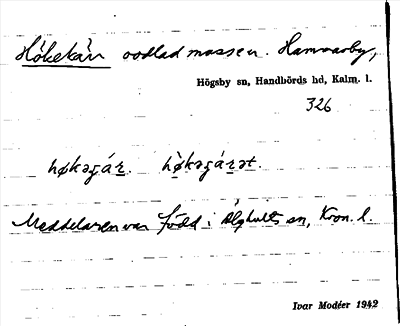 Hökekärr oodlad mosse n. Hammarby,
Högsby sn, Handbörds hd, Kalm. l.
326
høkəɟár. hø̀kəɟárət.
Meddelaren var född i Älghults sn, Kron. l.
Ivar Modéer 1942